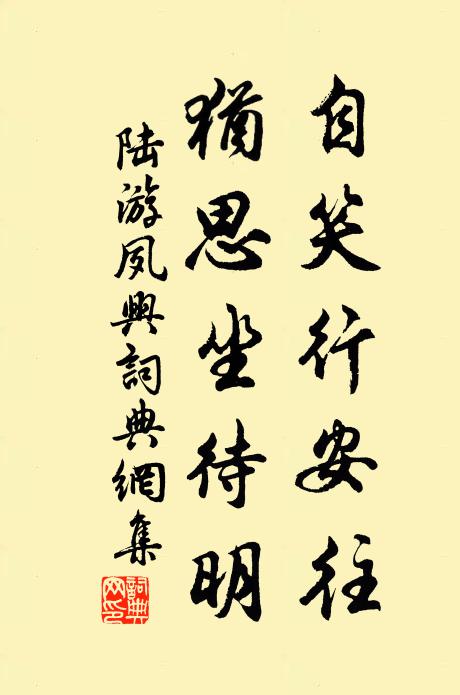 自笑行安往
猶思坐待明
陸游夙興詞典網集
詞典網印